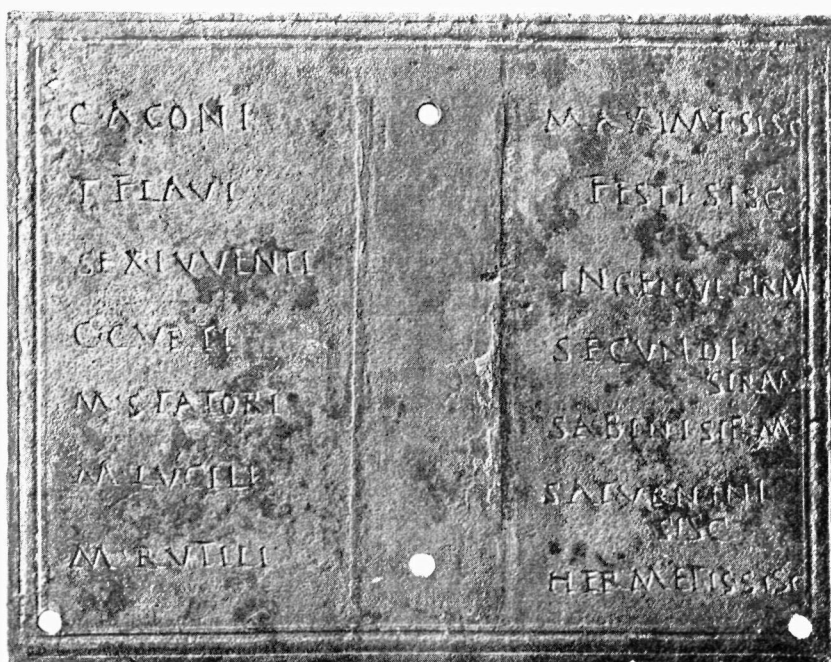 C A CONI
T FLAVI
SEX IVVENTI
M STATORI
M LVCILI
M RVTILI
MAXIMI SISC
FESTI SISC
INGENVI SIRM
SECVNDI
SIRM
SABINI SIRM
SATVRNINI
SISC
HERMETIS SISC